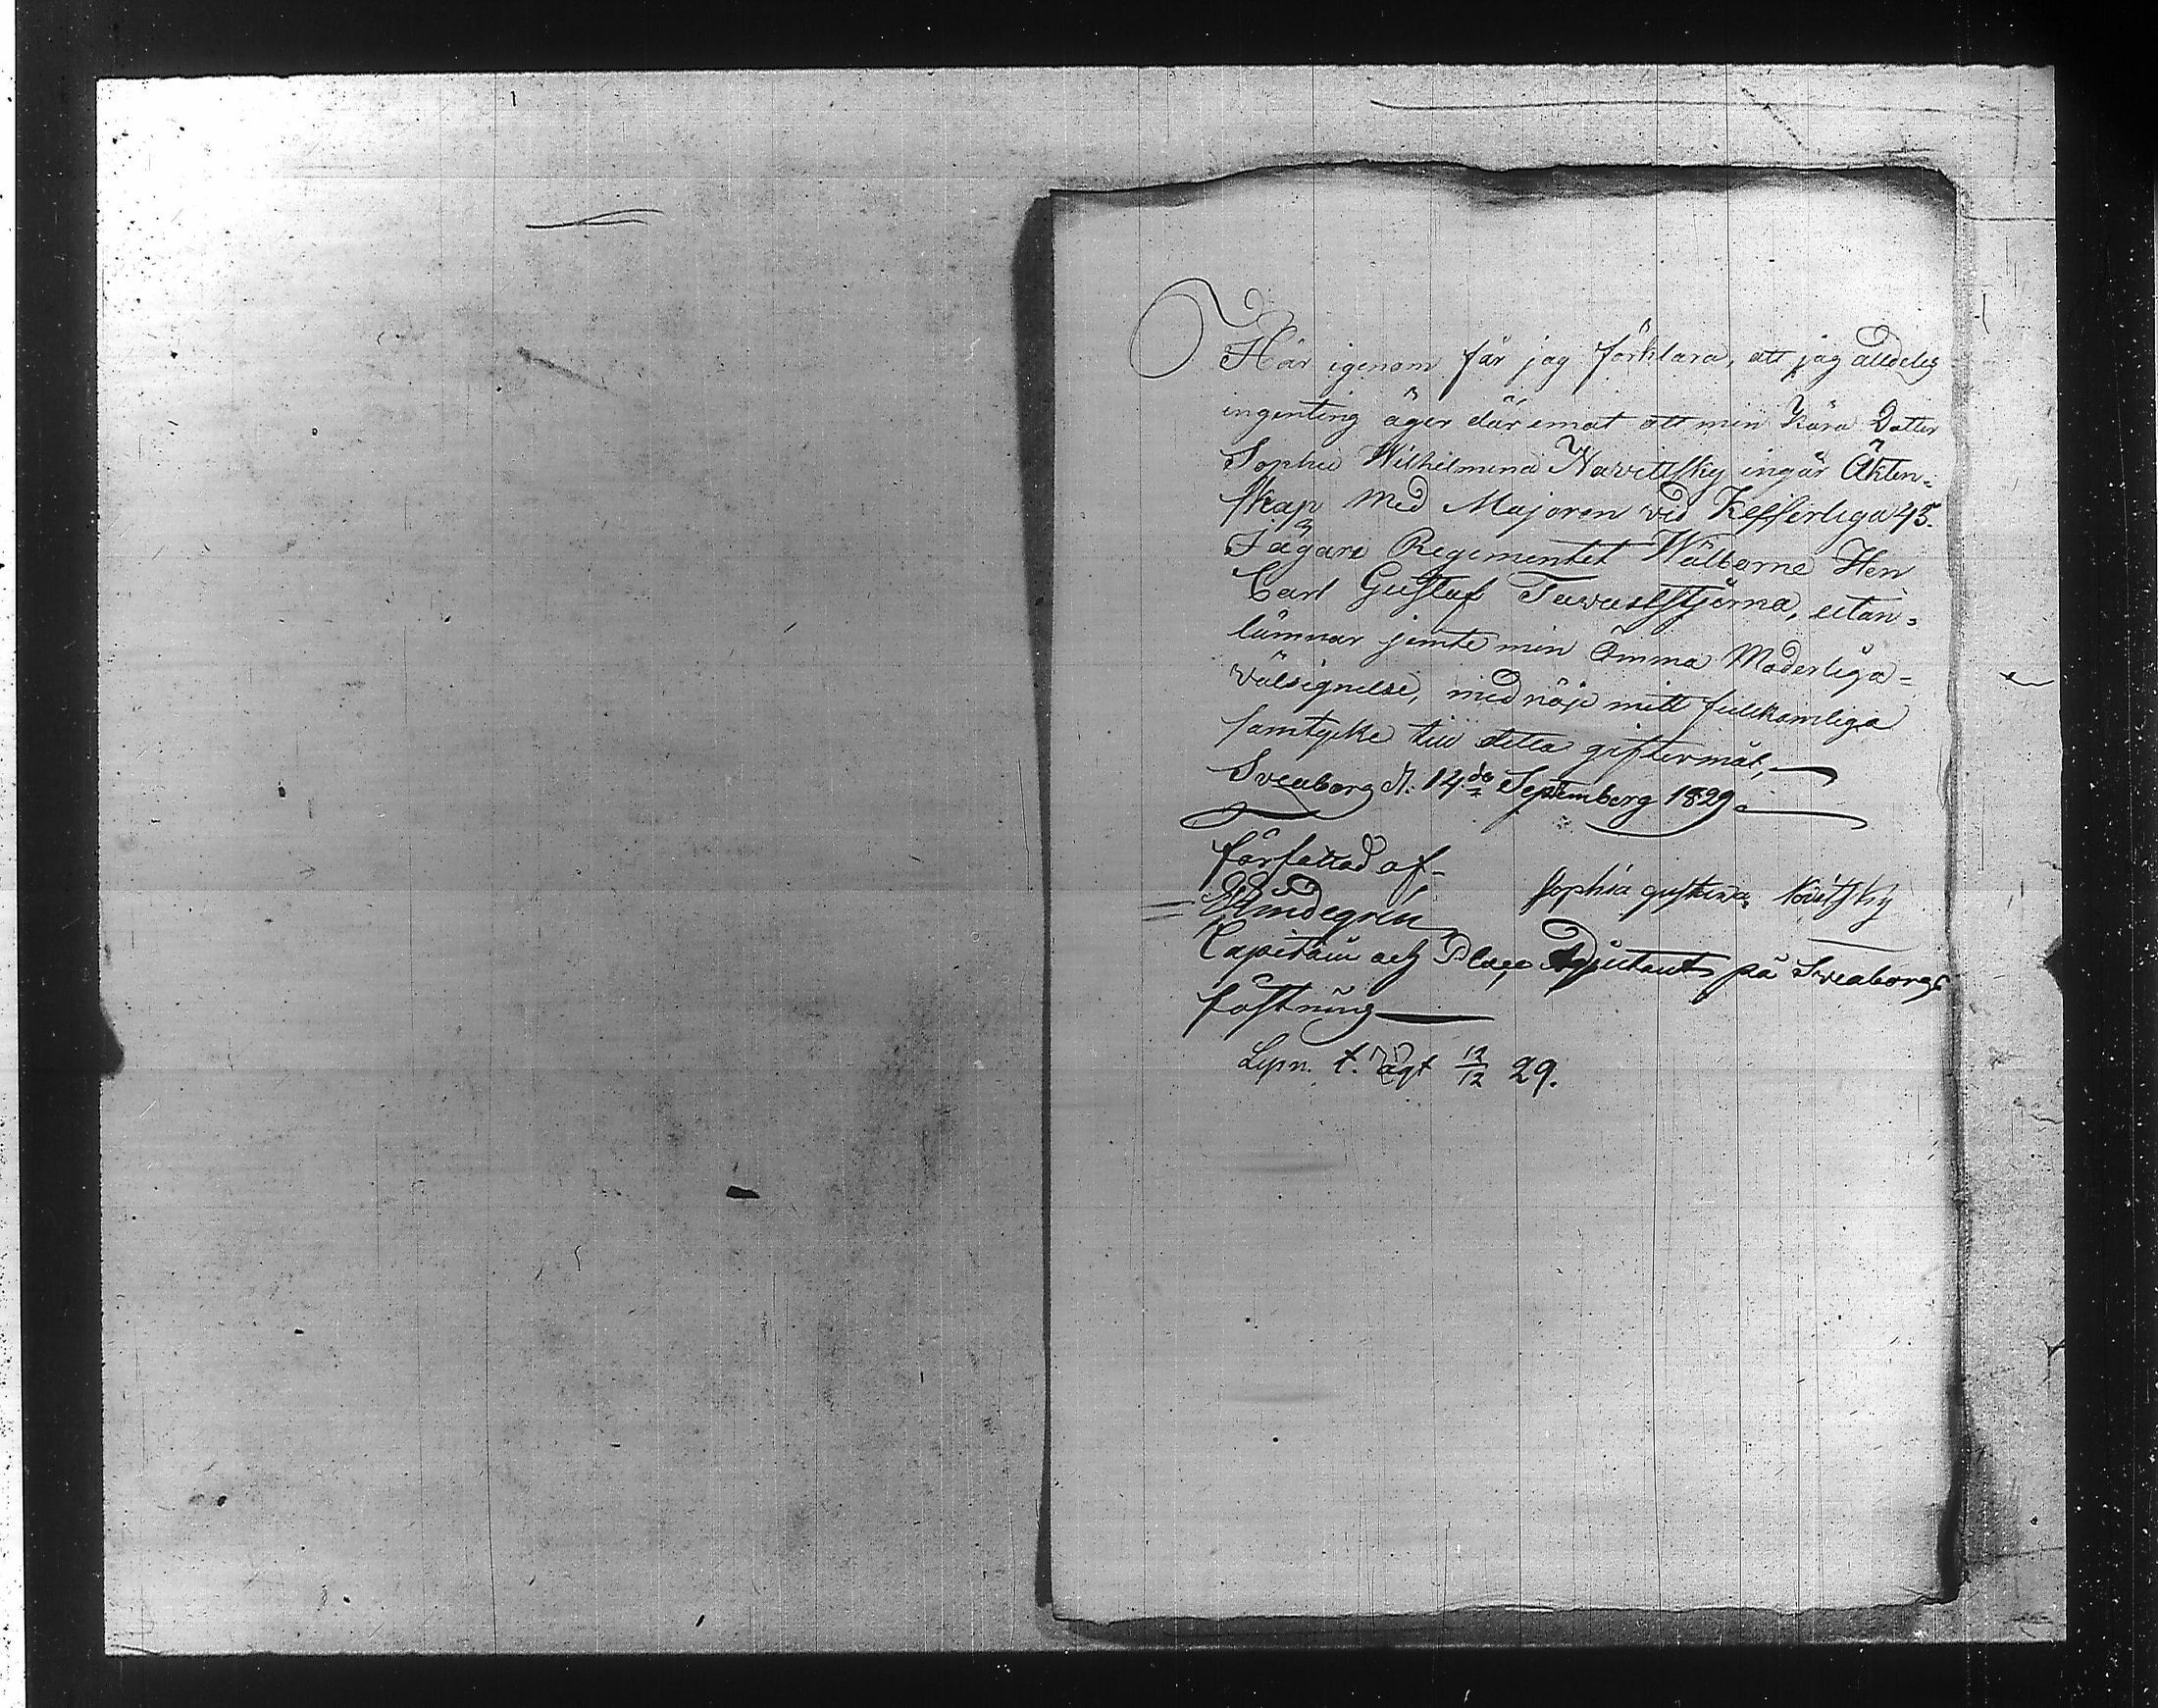 Här igenom får jag förklara, att jag alldeles
ingenting äger däremot att min Kära Dotter
Sophia Wilhelmina Navitsky ingår Äkten=
skap med Majoren vid Kejserliga 45.
Jägare Regementet Wälborne Herr
Carl Gustaf Tavaststjerna, utan=
lämnar jemte min Ömma Moderliga=
välsignelse, med nöje mitt fullkomliga
samtycke till detta giftermål,
Sveaborg d. 14de September 1829
författad af
Sophia gustava Novitsky
Lindegrén
Capitain och Place Adjutant på Sveaborgs
fästning
Lysn. t. 12/12 29.